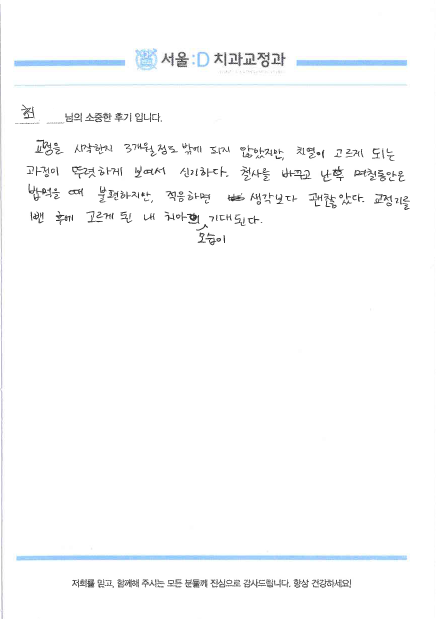 서울:D 치과교정과
최 님의 소중한 후기 입니다.
교정을 시작한지 3개월정도 밖에 되지 않았지만, 치열이 고르게 되는
과정이 뚜렷하게 보여서 신기하다. 철사를 바꾸고 난후 며칠동안은
밥먹을 때 불편하지만, 적응하면 생각보다 괜찮았다. 교정기를
뺀 후에 고르게 된 내 치아의 모습이 기대된다.
저희를 믿고, 함께해 주시는 모든 분들께 진심으로 감사드립니다. 항상 건강하세요!